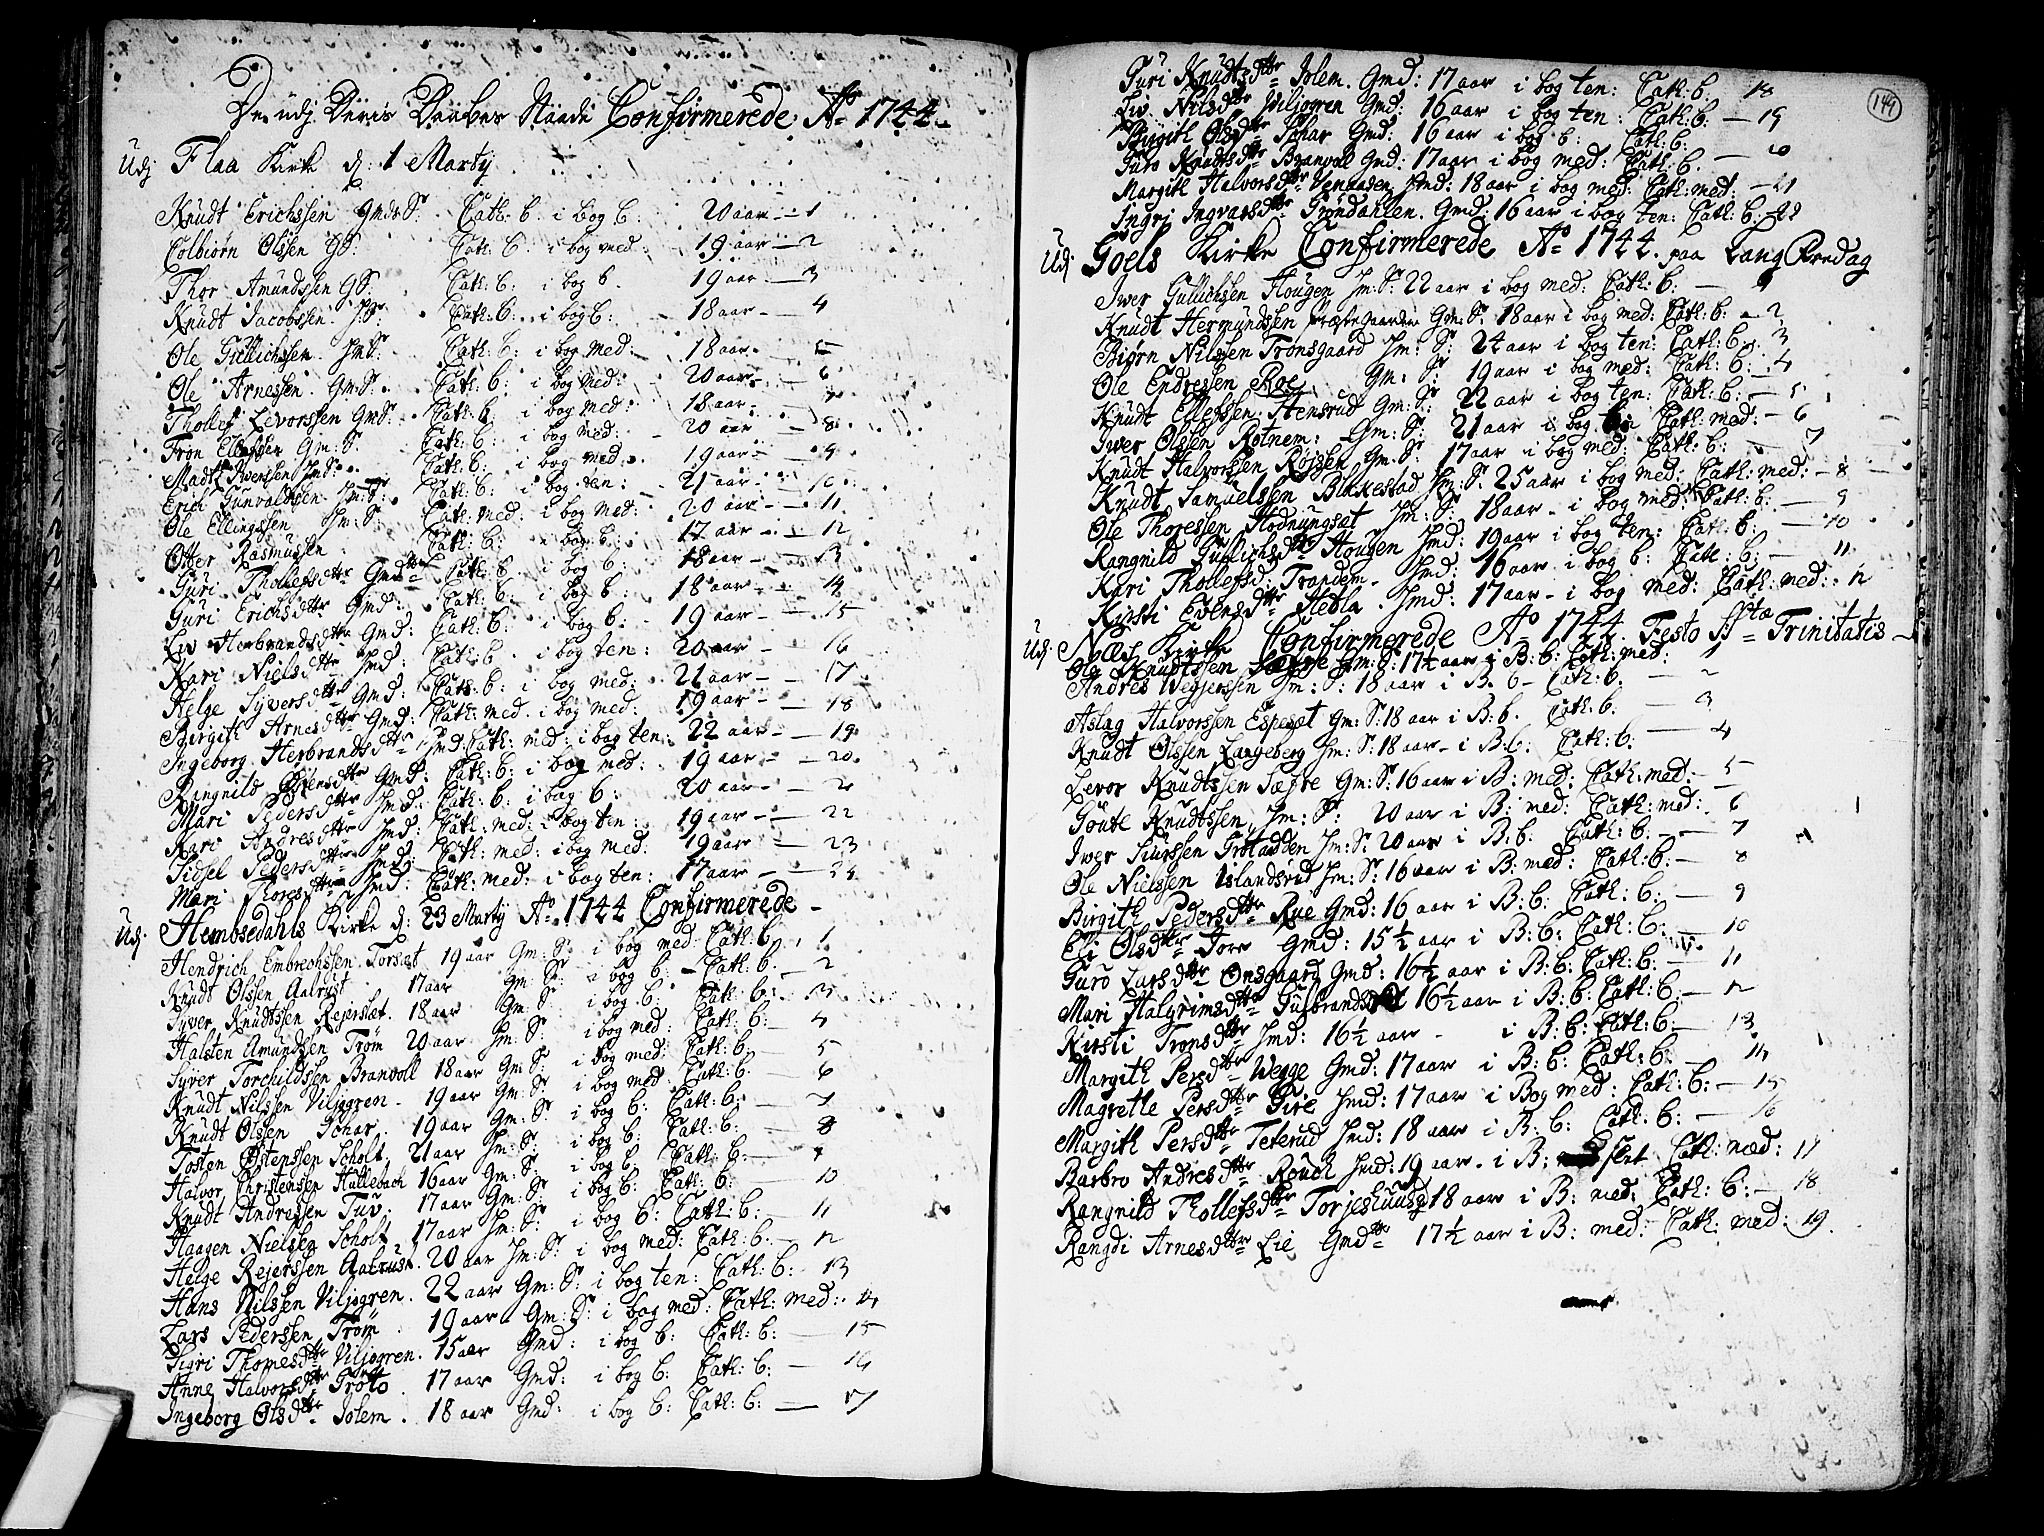 Confirmerede Ao 1744
Udj Flaa Kirke d: 1 Martij
Knudt Erichssen Gmds S: Cath: b: i bog b: 20 aar - 1
Colbiørn Olssen GS: Cath: b: i bog med: 19 aar - 2
Thor Amundssen GS: Cath: b: i bog b. 19 aar - 3
Knudt Jacobssen JS: Cath: b: i bog b: 18 aar - 4
Ole Gullichssen JmS: Cath: b: i bog med: 18 aar - 5
Ole Arnessen GmS: Cath: b: i bog med: 20 aar - 6
Thollef Levorssen GmS: Cath: b: i bog med: 18 aar - 7
Tron Gm: S: Cath: b: i bog med: 20 aar - 8
Iwerssen JmS: Cath: b: i bog med: 19 aar - 9
Erich Gunvaldssen Jm: S: Cath: b: i bog ten: 21 aar - 10
Ole Ellingssen Jm: S: Cath: med: i bog med: 20 aar - 11
Otter Rasmussen Cath: b: i bog b: 17 aar - 12
Guri Thollefsdttr Gmd: Cath: b: i bog b: 18 aar - 13
Guri Erichsdttr Gmd: Cath: b: i bog b: 18 aar - 14
Liv Herbrandsdttr Gmd: Cath: b: i bog b: 19 aar - 15
Kari Nielsdttr Jmd: Cath: b. i bog ten: 20 aar - 16
Helge Syversdttr Gmd: Cath: b: i bog med: 21 aar - 17
Birgith Arnesdttr Gmd: Cath: med. i bog med: 19 aar - 18
Ingeborg Herbrandsdttr Jmd: Cath: med: i bog ten: 22 aar - 19
Rangnild dttr Gmd: Cath: b: i bog med: 19 aar - 20
Mari Pedersdttr Jmd: Cath: b: i bog b: 20 aar - 21
Kari Andresdttr Jmd: Cath: med: i bog ten: 19 aar - 22
Sidsel Pedersdttr Jmd: Cath: med: i bog med: 19 aar - 23
Mari Thoresdttr Jmd: Cath: med: i bog ten: 17 aar - 24
Udj Hembsedahls Kirke d: 23 Martij Ao 1744 Confirmerede
Hendrich Embrechssen Torset 19 aar Gm: S: i bog med: Cath: b. 1
Knudt Olssen Aalrust 17 aar Gm: S: i bog b: Cath: b. - 2
Syver Knudtssen Rejerslet. 18 aar Gm: S: i bog b: Cath: b: 3
Halsten Amundssen Trøm 20 aar Jm: S: i bog med: Cath: b: 4
Syver Torchildssen Branvoll 18 aar Gm: S: i bog med: Cath: b: 5
Knudt Nilssen Viljogren - 19 aar Gm: S: i bog med: Cath: b: 6
Knudt Olssen Schar. 19 aar Gm: S: i bog b: Cath: b: - 7
Tosten Østenssen Scholt. 21 aar Jm: S: i bog b: Cath: b: - 8
Halvor Christensen Hullebach 16 aar Gm: S: i bog b: Cath: b: - 9
Knudt Andressen Tuv. 17 aar Gm: S: i bog b: Cath: b: - 10
Haagen Nielsen Scholt. 17 aar Jm: S: i bog b: Cath: b: - 11
Helge Rejerssen Aalrust. 20 aar Jm: S: i bog med: Cath: b. - 12
Hans Nilssen Viljogren. 22 aar Gm: S: i bog ten: Cath: b: 13
Lars Pederssen Trøm 19 aar - Gm: S: i bog med: Cath: med: 14
Sigri Thomesdttr Viljogren. 15 aar Gmd: i bog b: Cath: b: - 15
Anne Halvorsdttr Trøto 17 aar Gmd: i bog b: Cath: b: - 16
Ingeborg Olsdttr Jolem. 18 aar Gmd: i bog b: Cath: b: - 17
149
Guri Knudtsdttr Jolem. Gmd: 17 aar i bog ten: Cath: b: 18
Liv Nilsdttr Viljogren Gmd: 16 aar i bog ten: Cath: b: - 19
Birgith Olsdttr Schar Gmd: 16 aar i bog b: Cath: b:
Guro Knudtsdttr Branvoll Gmd: 17 aar i bog med: Cath: b. - 20
Margith Halvorsdttr Gmd: 18 aar i bog med: Cath: med: - 21
Ingri Ingvarsdttr Trøndahlen. Gmd: 16 aar i bog ten: Cath: b: - 22
Udj Goels Kirke Confirmerede Ao 1744. paa Lang Fredag
Iwer Gullichssen Hougen Jm: S: 22 aar i bog med: Cath: b: - 1
Knudt Hermundssen Gm: S: 18 aar i bog med: Cath: b: - 2
Biørn Nilssen Tronsgaard Jm: S: 24 aar i bog ten: Cath: b: 3
Ole Endressen Roe Gm: S: 19 aar i bog med: Cath: b: - 4
Knudt Ellefssen Stensrud Gm: S: 22 aar i bog ten: Cath: b: - 5
Iwer Olssen Rotnem: Gm: S: 21 aar i bog Cath: med: - 6
Knudt Halvorssen Røjsen Gm: S: 17 aar i bog med: Cath: b: - 7
Knudt Samuelssen Blakestad Jm: S: 25 aar i bog med: Cath: med: - 8
Ole Thoressen Hodnungset Jm: S: 18 aar - i bog med: Cath: b: - 9
Rangnild Gullichsdttr Hougen Jmd: 19 aar i bog ten: Cath: b: - 10
Kari Thollefsd: Trandem - Jmd: 16 aar i bog b: Cath: b: - 11
Kirsti Evensdttr Hetla. Jmd: 17 aar - i bog med: Cath: med: - 12
Udj Næs Kirke Confirmerede Ao 1744. Festo SSta Trinitatis
Ole Knudtssen Jm: S: 17½ aar i B: b: Cath: med: 1
Andres Wegjerssen Jm: S: 18 aar i B. b - Cath: b. - 2
Aslag Halvorssen Espeset Gm: S: 18 aar i B: b. Cath: b. - 3
Knudt Olssen Langeberg Jm: S: 18 aar - i B: b: Cath: b. - 4
Levor Knudtssen Sæfre Gm: S: 16 aar i B: med: Cath: med: - 5
Goute Knudtssen, Jm: S: 20 aar i B: med: Cath: med: 6
Iwer Siurssen Jm: S: 20 aar i B: b. Cath: b: - 7
Ole Nielssen Islandsrud Jm: S: 16 aar i B: med: Cath: b: - 8
Birgith Pedersdttr Rue Gmd: 16 aar i B: b: Cath: b: - 9
Eli Olsdttr Gmd: 15½ aar i B: b: Cath: b: - 10
Guro Larsdttr Onsgaard Gmd: 16½ aar i B: b: Cath: b: - 11
Mari Halgrimsdttr 16½ aar i B: b: Cath: b: - 12
Kirsti Tronsdttr Jmd: 16½ aar - i B: b: Cath: b: - 13
Margith Persdttr Wegge Gmd: 17 aar i B: b: Cath: b: - 14
Magrethe Persdttr Jmd: 17 aar i Bog med: Cath: b: - 15
Margith Persdttr Teterud Jmd: 18 aar i B: b: Cath: b: - 16
Barbro Andresdttr Rouch Jmd: 19 aar - i B: slet Cath: med: 17
Rangnild Thollefsdttr 18 aar i B: med: Cath: b: - 18
Rangdi Arnesdttr Lie Gmd 17½ aar i B: med: Cath: med: 19.